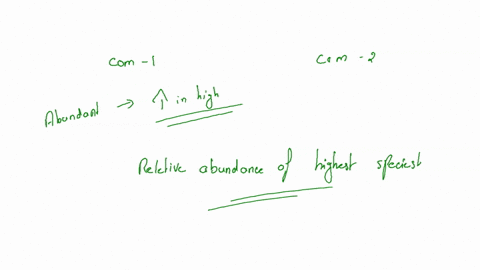 Com - 1
Com - 2
Abundant → ↑ in high
Reletive abundance of highest speciest